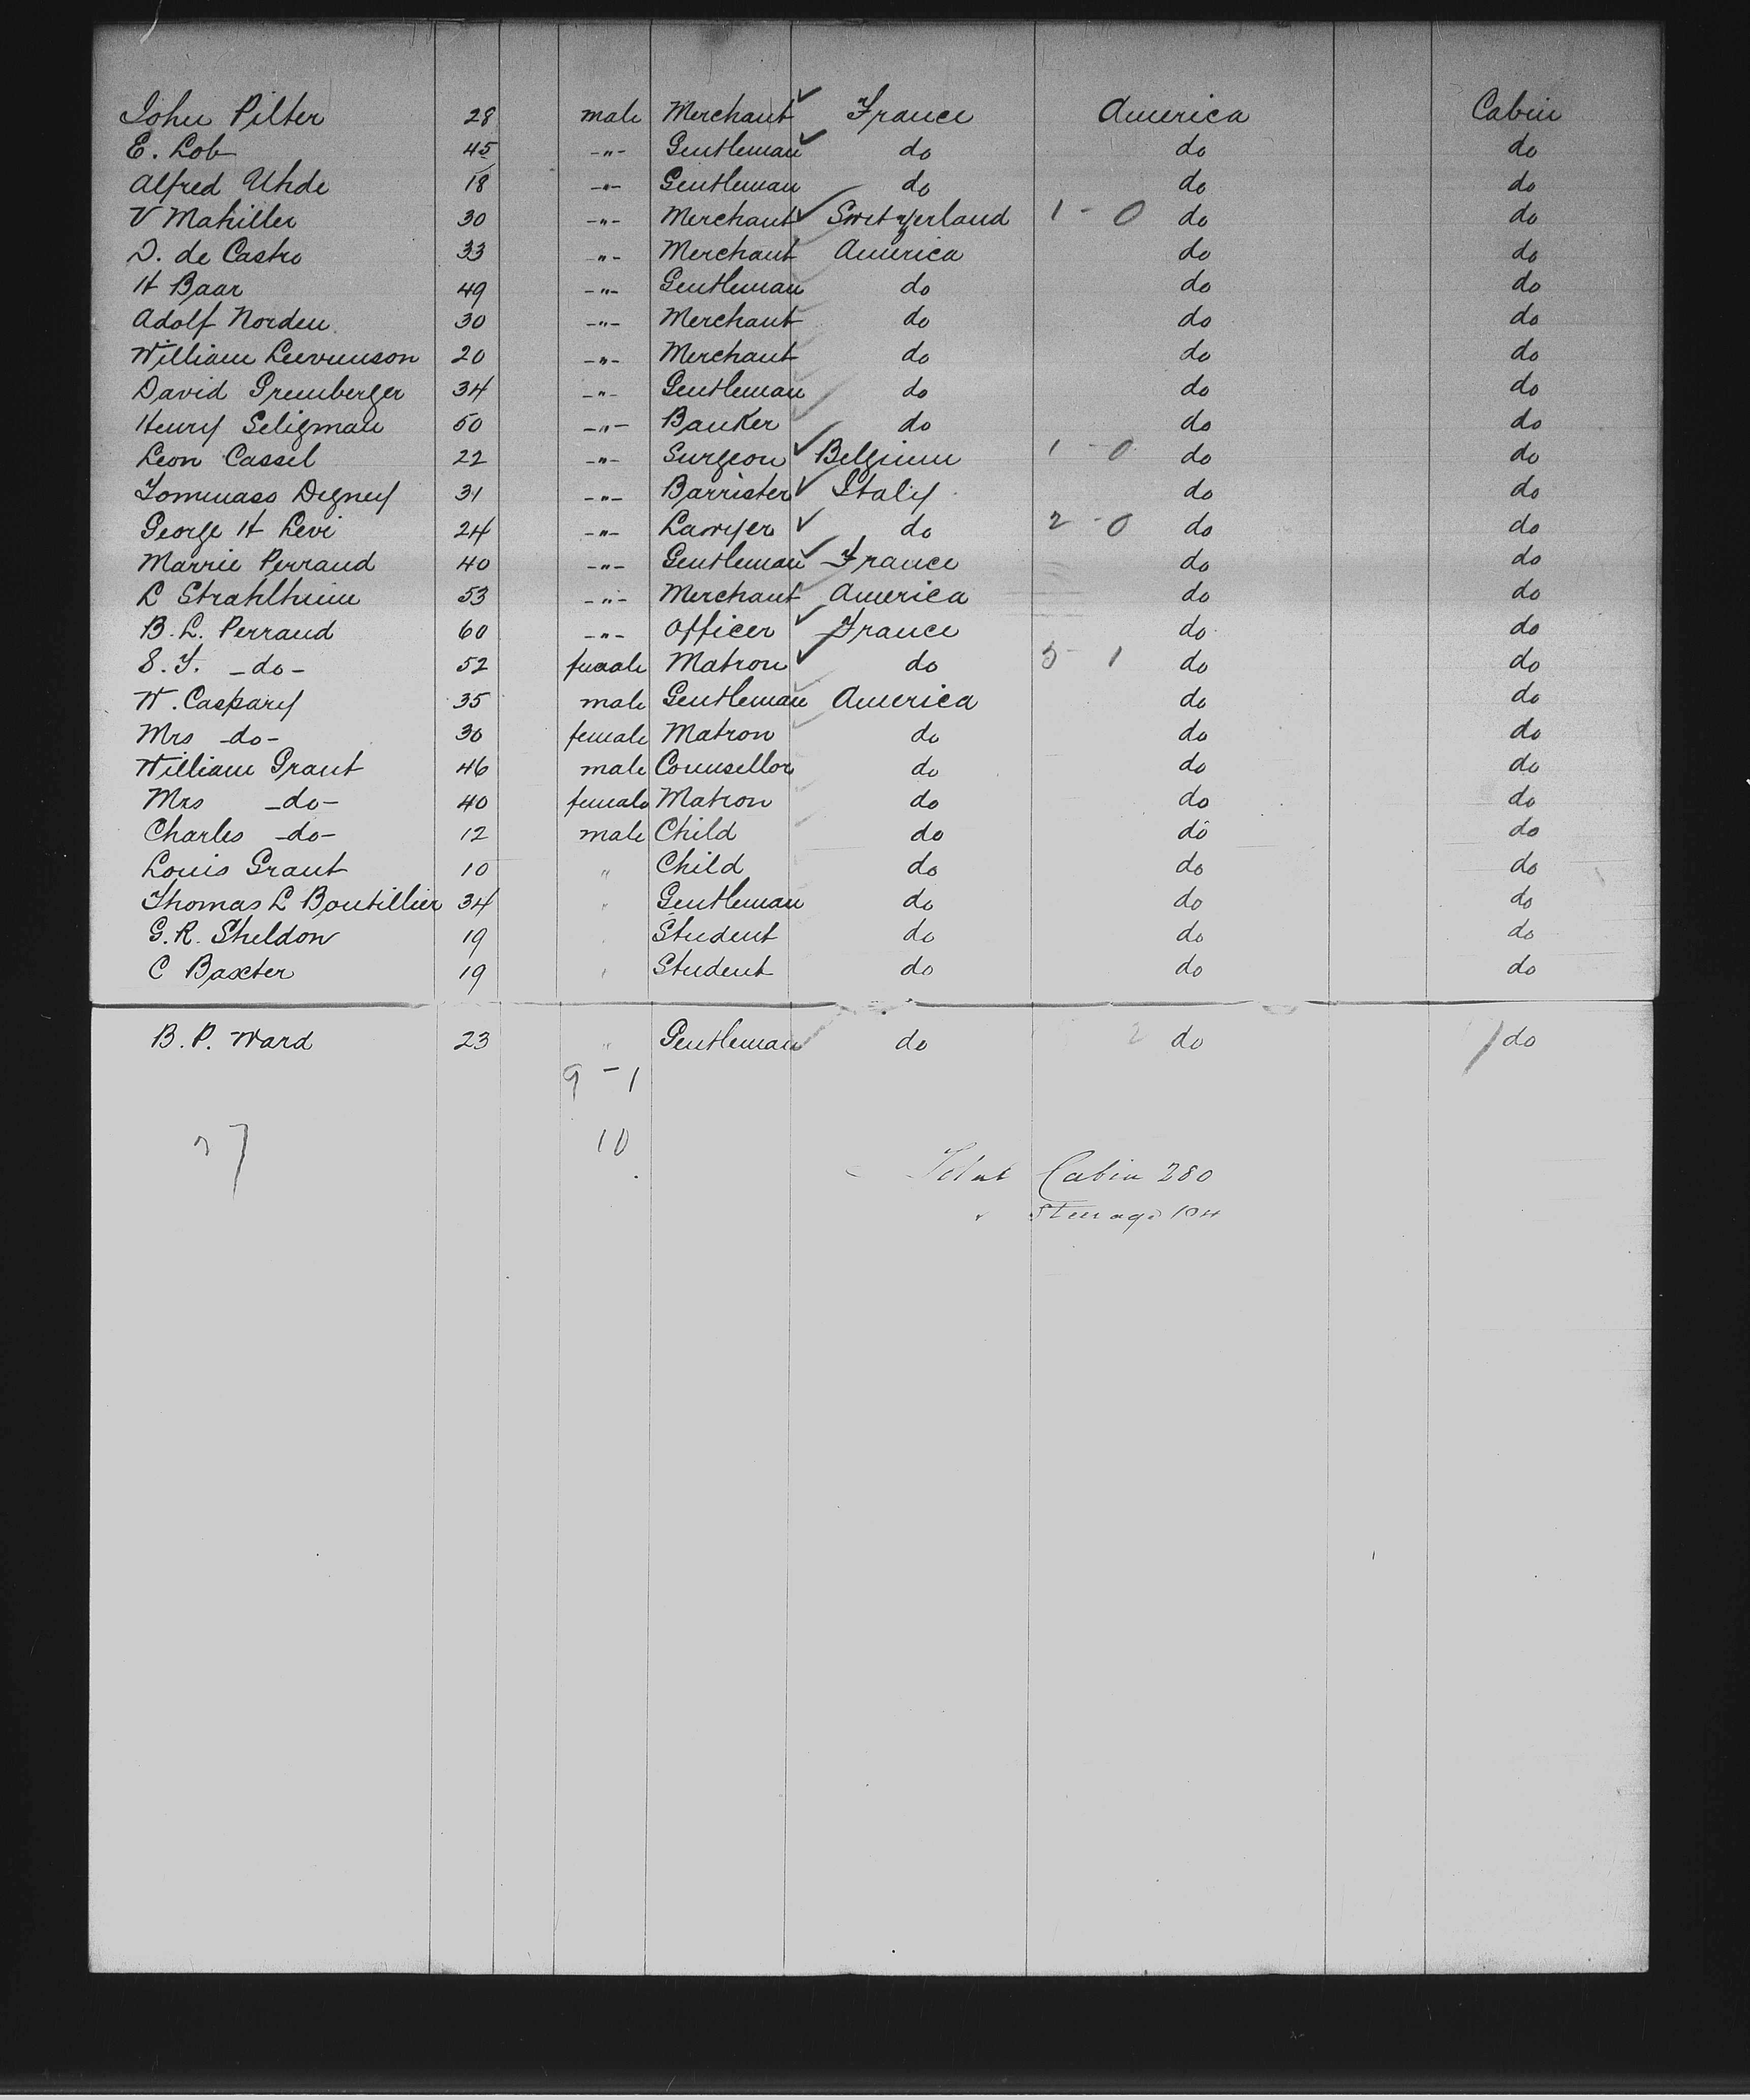 John Pilter 28 male Merchant France America Cabin
E. Lob 45 -"- Gentleman do do do
Alfred Uhde 18 -"- Gentleman do do do
V Mahiller 30 -"- Merchant Switzerland 1 - 0 do do
D. de Castro 33 -"- Merchant America do do
H Baar 49 -"- Gentleman do do do
Adolf Norden 30 -"- Merchant do do do
William 20 -"- Merchant do do do
David Greuberger 34 -"- Gentleman do do do
Henry Seligman 50 -"- Banker do do do
Leon Cassel 22 -"- Surgeon Belgium 1 - 0 do do
Tommaso Digney 31 -"- Barrister Italy do do
George H Levi 24 -"- Lawyer do 2 - 0 do do
Marrie Perraud 40 -"- Gentleman France do do
L Strahlheim 53 -"- Merchant America do do
B. L. Perraud 60 -"- Officer France do do
S. T. -do- 52 female Matron do 5 1 do do
W. Caspary 35 male Gentleman America do do
Mrs -do- 30 female Matron do do do
William Grant 46 male Counsellor do do do
Mrs -do- 40 female Matron do do do
Charles -do- 12 male Child do do do
Louis Grant 10 " Child do do do
Thomas L Boutillier 34 " Gentleman do do do
G. R. Sheldon 19 " Student do do do
C Baxter 19 " Student do do do
B. P. Ward 23 " Gentleman do 2 do do
9 - 1
27 10
Total Cabin 280
" Steerage 104